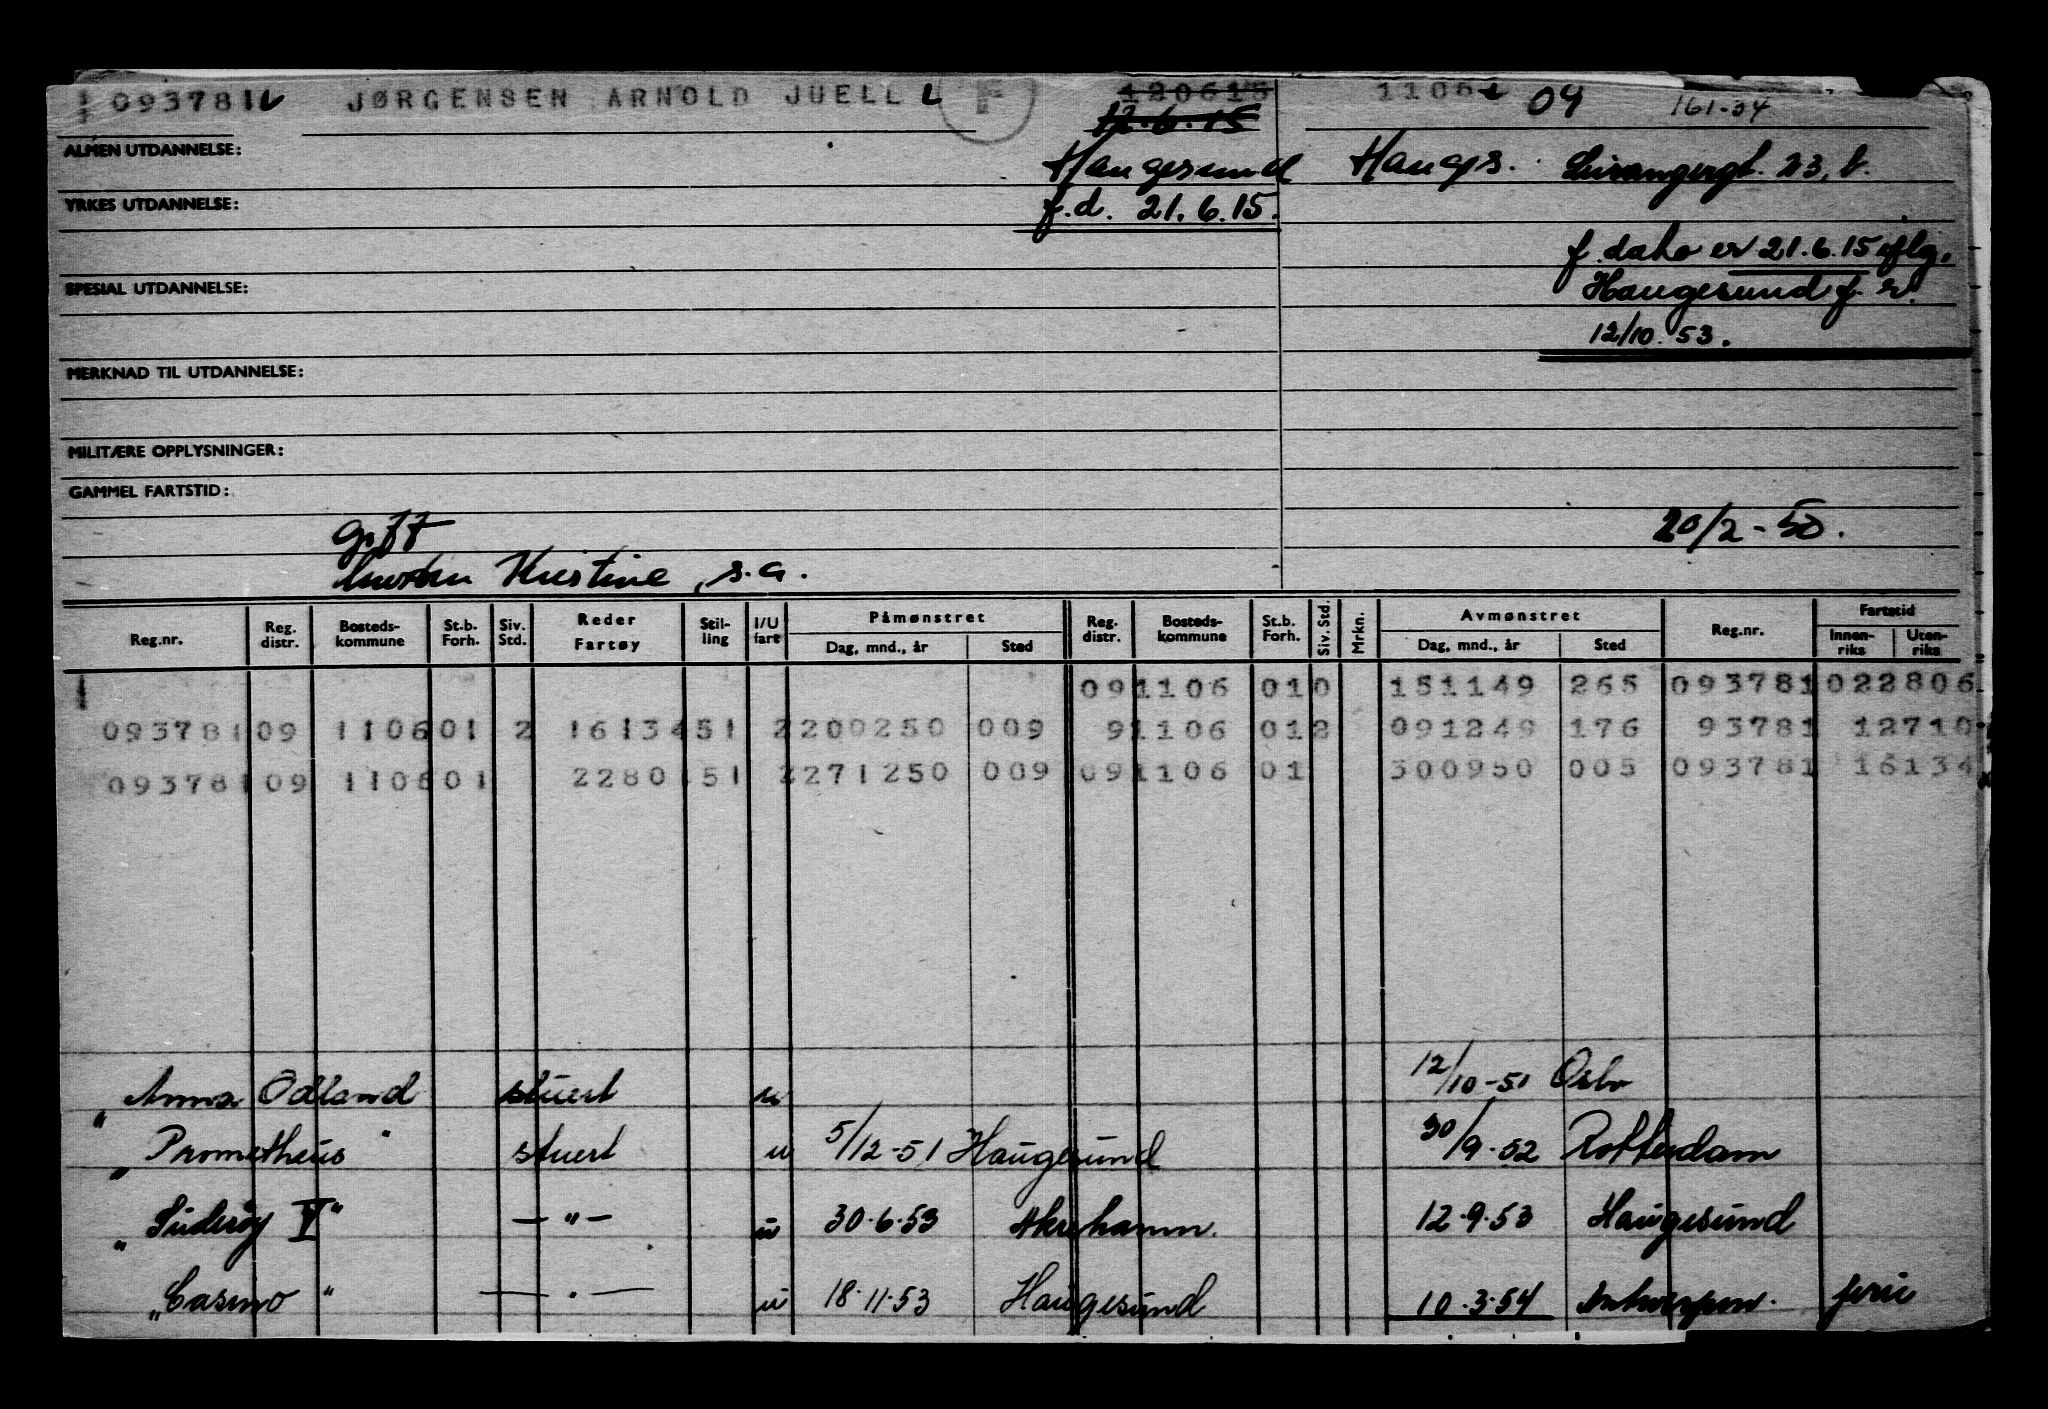 093781 JØRGENSEN ARNOLD JUELL F 120615 1106 09 161-34
12.6.15
ALMEN UTDANNELSE: Haugesund Haugs. 23, b.
YRKES UTDANNELSE: f.d. 21.6.15.
f. dato er 21.6.15 iflg.
SPESIAL UTDANNELSE: Haugesund f. r.
12/10.53.
MERKNAD TIL UTDANNELSE:
MILITÆRE OPPLYSNINGER:
GAMMEL FARTSTID:
gift 20/2-50.
Kristine, s.a.
Reg.nr. Reg. distr. Bosteds-kommune St.b. Forh. Siv. Std. Reder Fartøy Stil-ling I/U fart Påmønstret Dag, mnd., år Sted Reg. distr. Bosteds-kommune St.b. Forh. Siv. Std. Mrkn. Avmønstret Dag, mnd., år Sted Reg.nr. Fartstid Innen-riks Uten-riks
09 1106 01 0 151149 265 093781 022806
093781 09 1106 01 2 16134 51 2 200250 009 9 1106 01 2 091249 176 93781 12710
093781 09 1106 01 2280 51 2 271250 009 09 1106 01 300950 005 093781 16134
" Anna Odland stuert u 12/10-51 Oslo
" Prometheus " stuert u 5/12-51 Haugesund 30/9-52 Rotterdam
" Suderøy V " — " — u 30.6.53 Akrehamn. 12.9.53 Haugesund
" Casino " — . — u 18.11.53 Haugesund 10.3.54 Antwerpen. ferie